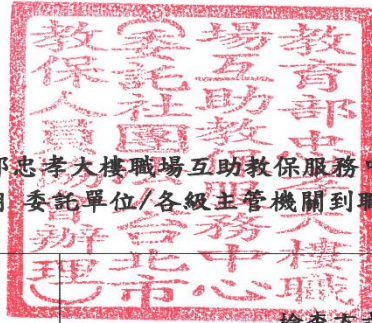 教育部忠孝大樓職
場互助教保服務中心
（委託社團法人台北市
教保人員協會辦理）
部忠孝大樓職場互助教保服務中
委託單位/各級主管機關到職